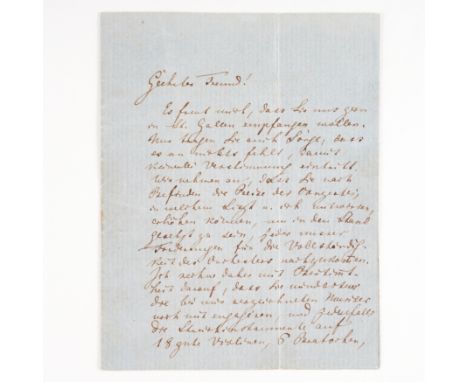 Geehrter Freund!
Es freut mich, dass Sie uns gern
in St. Gallen empfangen wollen.
Nun tragen Sie auch Sorge, dass
es an nichts fehlt, damit
keinerlei Verstimmung eintritt.
Wir nehmen an, dass Sie nach
Befinden die Preise des Concertes,
in welchem Liszt u. ich mitwirken,
erhöhen können, um in den Stand
gesetzt zu sein, jeder unserer
Forderungen für die Vollständig-
keit des Orchesters nachzukommen.
Ich rechne daher mit Bestimmt-
heit darauf, dass Sie mindestens
die bei mir verzeichneten Musiker
noch mit engagiren, und jedenfalls
die Streichinstrumente auf
18 gute Violinen, 6 Bratschen,